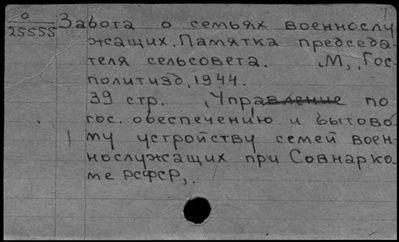 0
25555
Забота о семьях военнослу
жащих. Памятка председа-
теля сельсовета. М., Гос-
политизд, 1944.
39 стр. (Управление по
гос. обеспечению и бытово
му устройству семей воен-
нослужащих при Совнарко-
ме РСФСР).